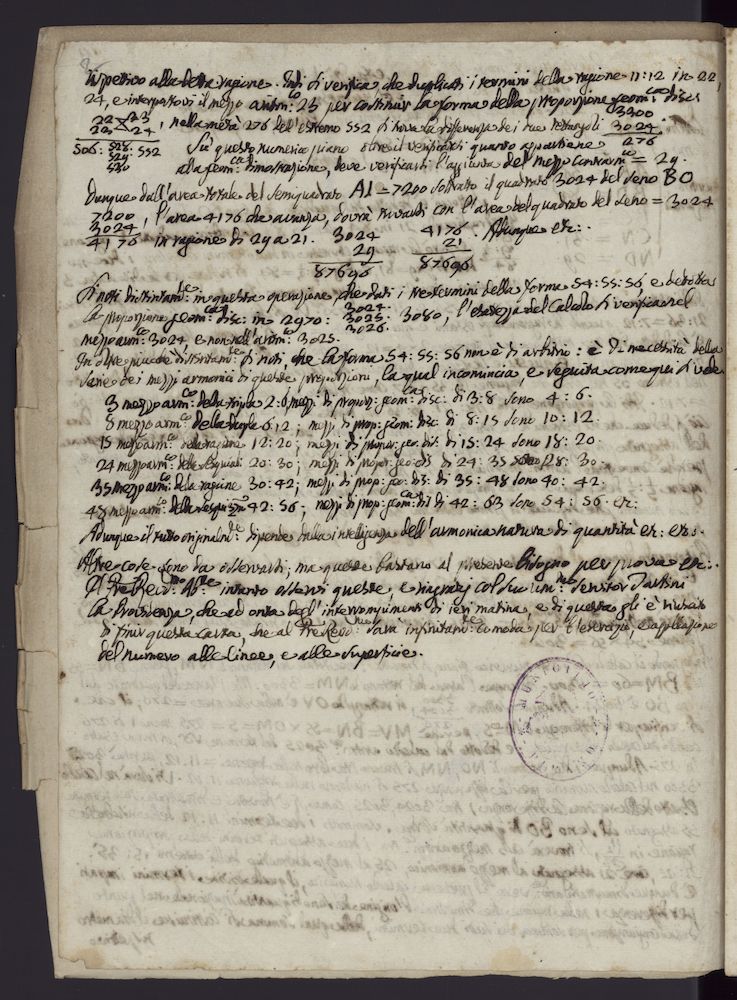 rispettivo alla detta ragione. Indi si verifica che duplicati i termini della ragione 11:12 in 22,
24, e interpostovi il mezzo aritm:co 23 per continuar la forma della proporzione geom:ca disc:
22 23 , nella metà 276 del'estremo 552 si trova la differenza dei due rettangoli 3300
23 24 3024
506: 528: 552 Su questo numerico piano oltre il verificarsi quanto appartiene 276
529
530 alla geom:ca dimostrazione, deve verificarsi l'aggiunta del mezzo contrarm:co = 29.
Dunque dall'area totale del semiquadrato A1 = 7200 sottrato il quadrato 3024 del seno BO
7200 , l'area 4176 che avanza, dovrà trovarsi con l'area del quadrato del seno = 3024
3024
4176 in ragione di 29 a 21. 3024 4176. Adunque etc:.
29 21
87696 87696
Si noti distintam:te in questa operazione, che dati i tre termini della forma 54:55:56, e dedotta
la proporzione geom:ca disc: in 2970: 3024: 3025: 3026: 3080, l'esattezza del Calcolo si verifica nel
mezzo arm:co 3024, e non nell'aritm:co 3025.
In oltre più che distintam:te si noti, che la forma 54:55:56 non è di arbitrio: è di necessità della
serie dei mezzi armonici di queste proporzioni, la qual incomincia, e seguita come qui si vede
3 mezzo arm:co della tripla 2:6; mezzi di propor: geom:ca disc: di 3:8 sono 4:6.
8 mezzo arm:co della dupla 6:12; mezzi di prop: geom: disc: di 8:15 sono 10:12.
15 mezzo arm:co della ragione 12:20; mezzi di propor: geo: dis: di 15:24 sono 18:20.
24 mezzo arm:co della sesquial: 20:30; mezzi di propor: geo: dis: di 24:35 sono 28:30.
35 mezzo arm:co della ragione 30:42; mezzi di prop: geo: dis: di 35:48 sono 40:42.
48 mezzo arm:co della sesquiterza 42:56; mezzi di prop: geom:ca dis: di 42:63 sono 54:56. etc:
Adunque il tutto originalm:te dipende dalla intelligenza dell'armonica natura di quantità etc: etc:.
Altre cose sono da osservarsi; ma queste bastano al presente bisogno per prova etc:.
Il P're Rev:mo Ab:te intanto osservi queste, e ringrazj col suo um:mo servitor Tartini
la Provvidenza, che ad onta degl'interrompimenti di ieri matina, e di questa gli è riuscito
di finir questa carta, che al P're Rev:mo sarà infinitam:te comoda per l'esercizio, e applicazione
del numero alle linee, e alle superficie.